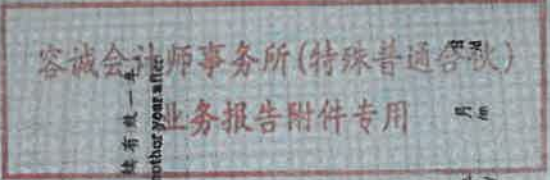 容诚会计师事务所(特殊普通合伙)
业务报告附件专用
续有效一年
another year after
月
日